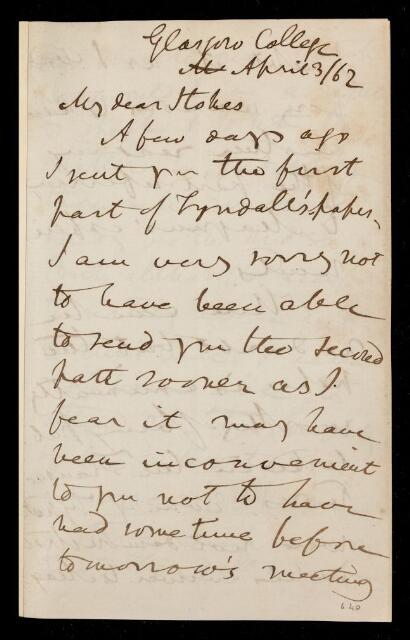 Glasgow College
April 3/62
My dear Stokes
A few days ago
I sent you the first
part of Tyndall's paper,
I am very sorry not
to have been able
to send you the second
part sooner as I
fear it may have
been inconvenient
to you not to have
had some time before
tomorrow's meeting
640